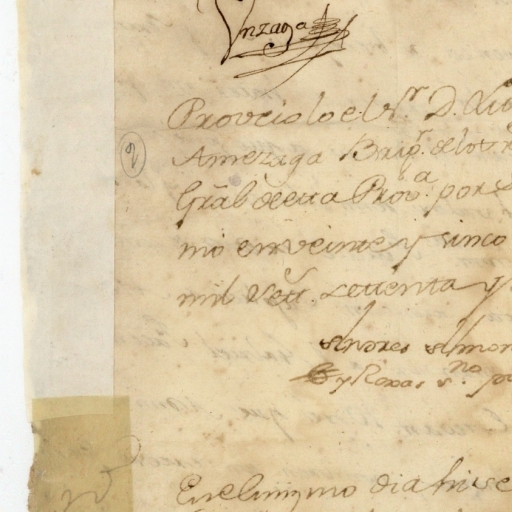 Vnzaga
Proveiolo el Sr. D. Luis
2
Amezaga Brigr. delos R
Gral deesta Provª. por S
mo enveinte y sinco
mil Sett. settenta y
Andres Almon
y Roxas Sno. pu
Enelmismo dia hise